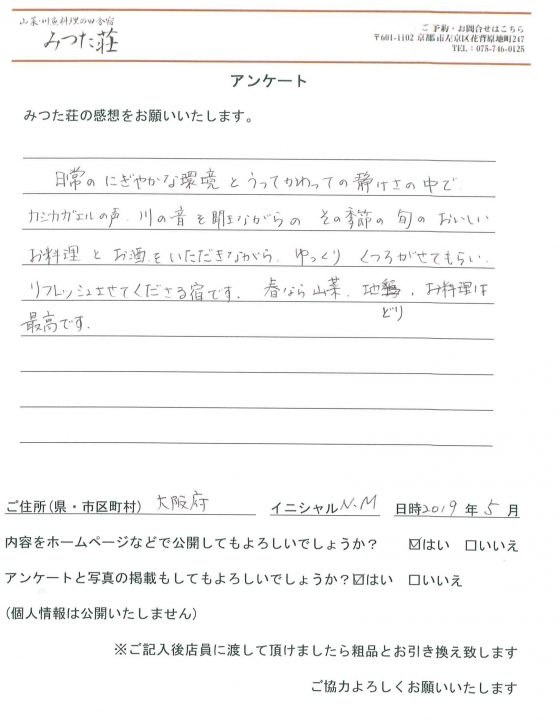 山菜・川魚料理の田舎宿
みつた荘
ご予約・お問合せはこちら
〒601-1102 京都市左京区花背原地町247
TEL：075-746-0125
アンケート
みつた荘の感想をお願いいたします。
日常のにぎやかな環境とうってかわっての静けさの中で
カジカガエルの声、川の音を聞きながらの その季節の旬のおいしい
お料理とお酒をいただきながら、ゆっくり くつろがせてもらい、
リフレッシュさせてくださる宿です。 春なら山菜、地、お料理は
どり
最高です。
ご住所(県・市区町村) 大阪府 イニシャル N.M 日時2019年5月
内容をホームページなどで公開してもよろしいでしょうか？ ☑はい □いいえ
アンケートと写真の掲載もしてもよろしいでしょうか？☑はい □いいえ
(個人情報は公開いたしません)
※ご記入後店員に渡して頂けましたら粗品とお引き換え致します
ご協力よろしくお願いいたします